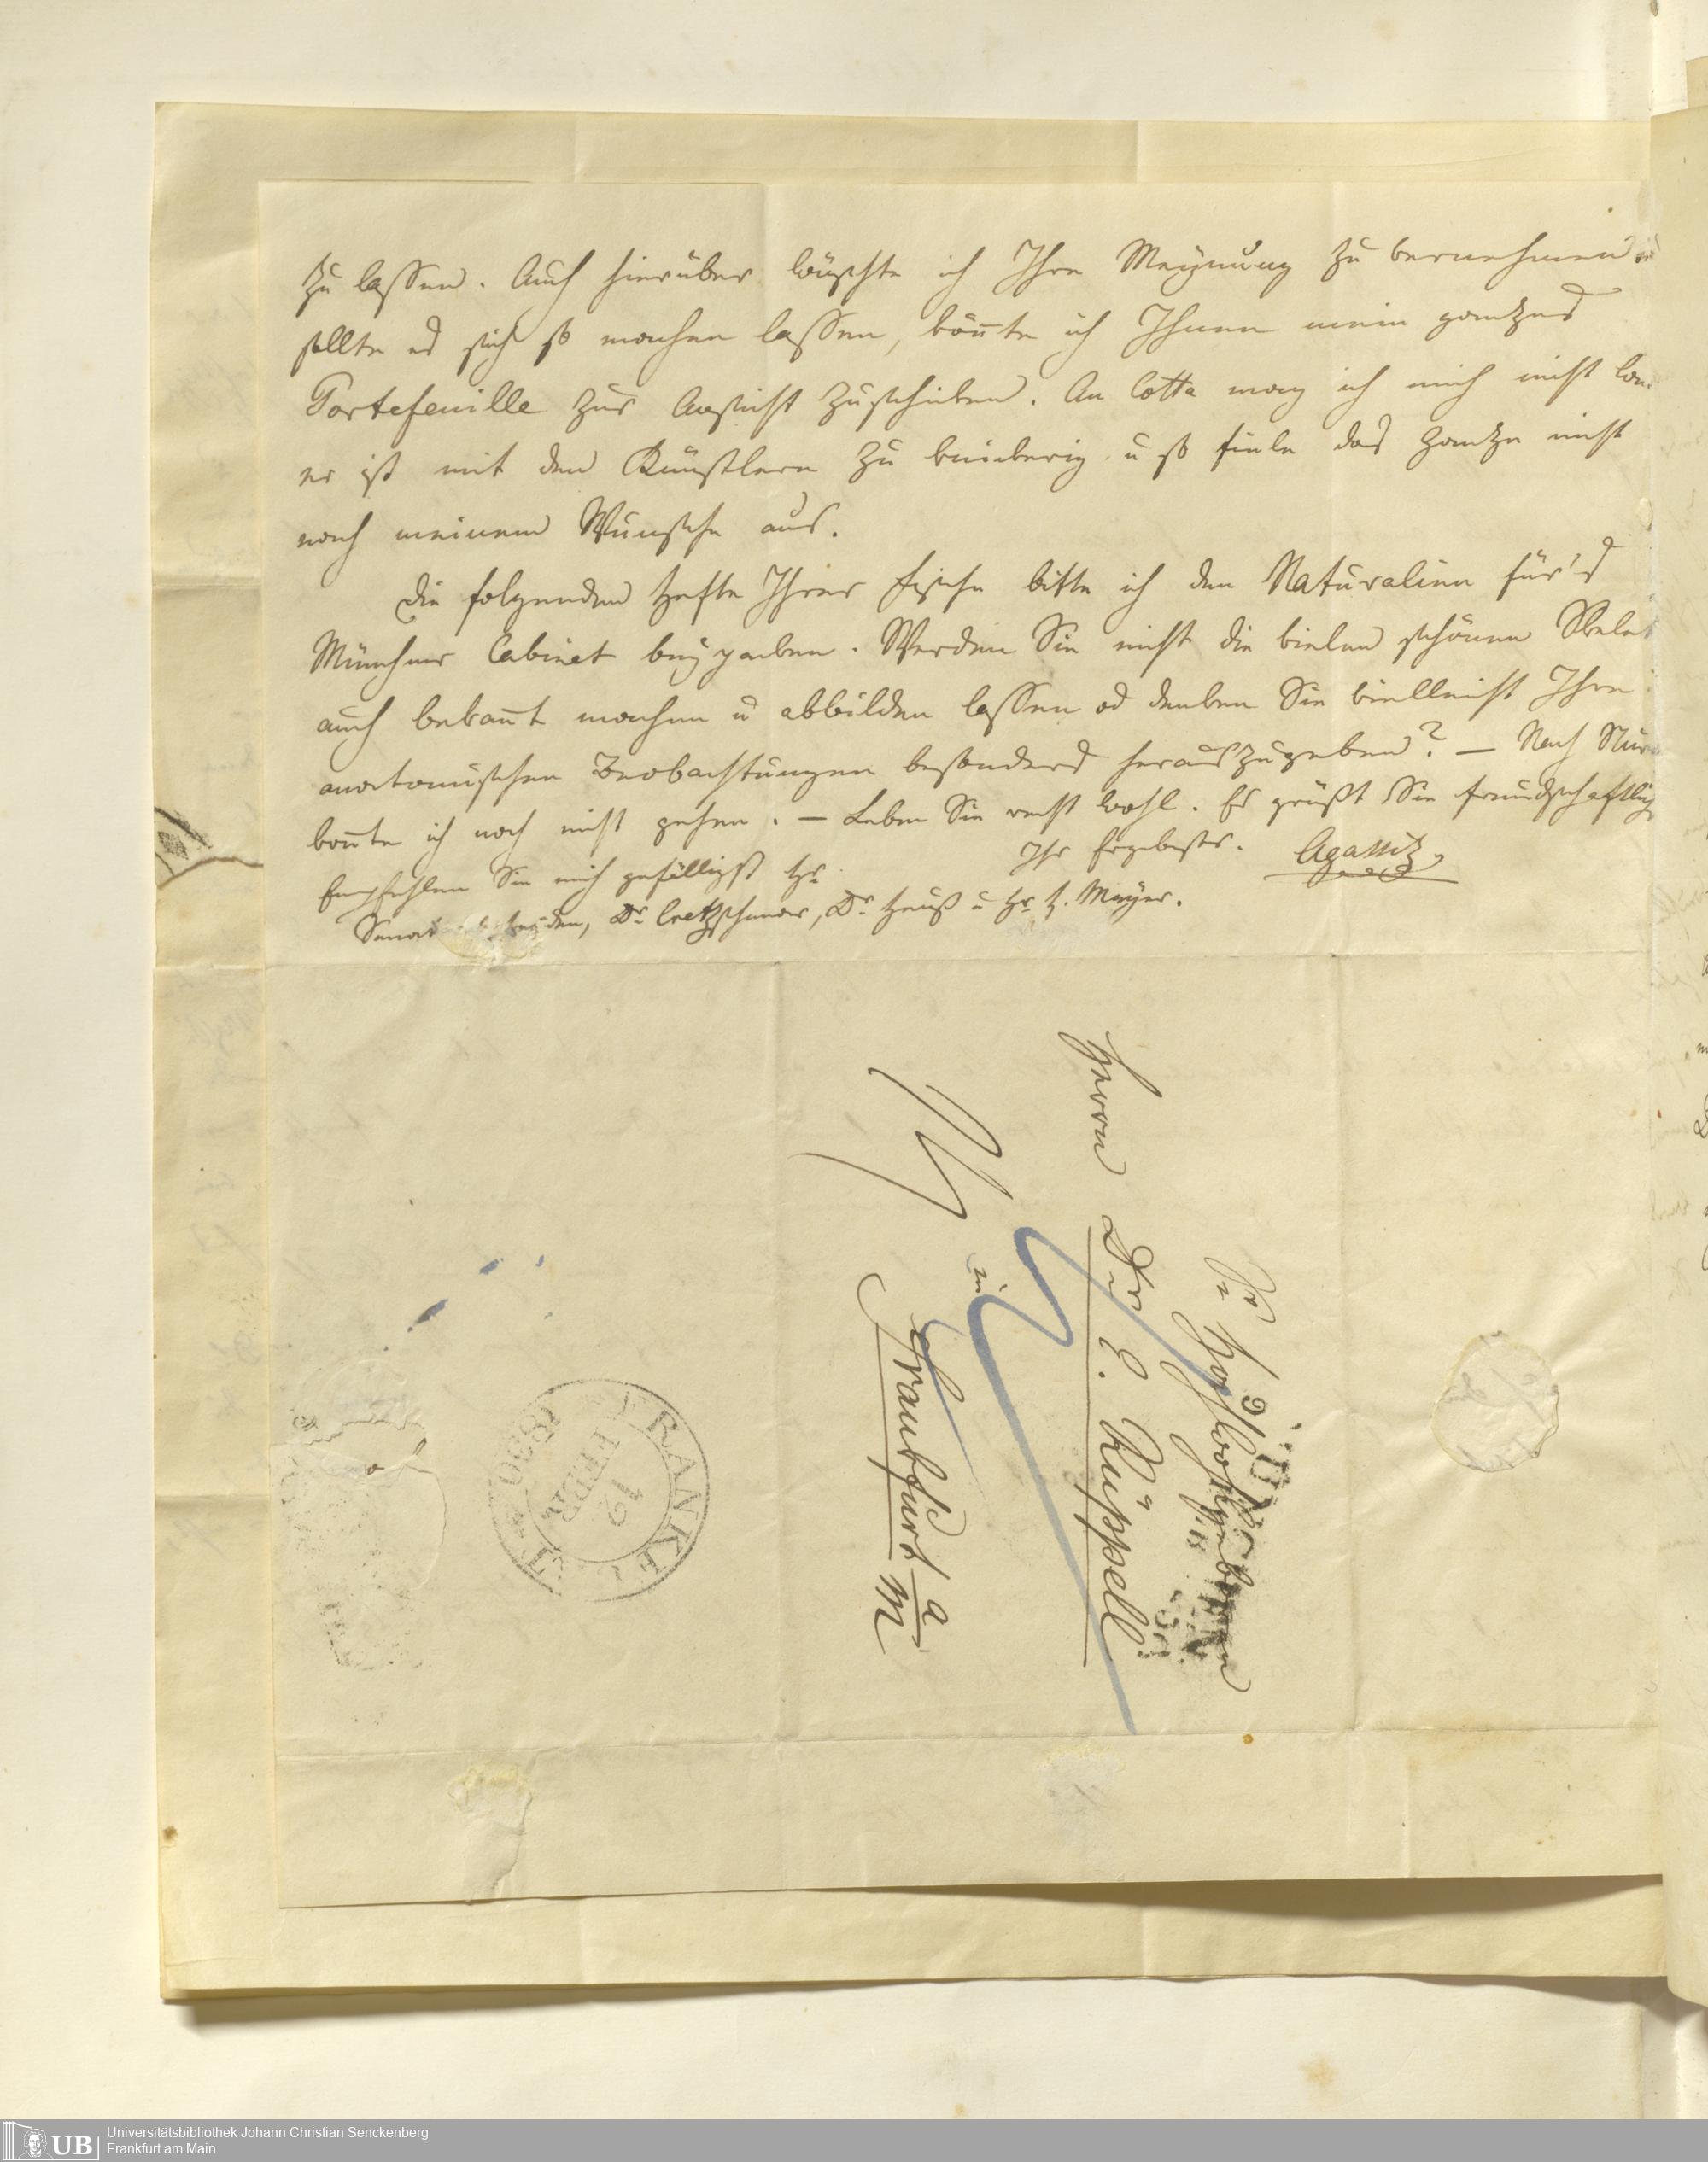 zu lassen. Auch hierüber wünschte ich Ihre Meynung zu vernehmen
sollte es sich so machen lassen, könnte ich Ihnen mein ganzes
Portefeuille zur Ansicht zuschicken. An Cotta mag ich mich nicht
er ist mit den Künstlern zu knickerig u so fiele das Ganze nicht
nach meinem Wunsche aus.
Die folgenden Hefte Ihrer Fische bitte ich den Naturalien für's
Münchner Cabinet beyzugeben. Werden Sie nicht die vielen schönen
auch bekannt machen u abbilden lassen od denken Sie vielleicht Ihre
anatomischen Beobachtungen besonders herauszugeben? — Nach
konnte ich noch nicht gehen. — Leben Sie recht wohl. Es grüßt Sie freundschaftlich
Ihr Ergebenster. Agassiz
Empfehlen Sie mich gefälligst Hr
Senat Dr Cretzschmar, Dr u Hr H. Meyer.
Sr Hochwohlgeboren
Herrn Dr E. Rüppell
in
Frankfurt a M
FRANKFURT
12
FEBR
1830
Universitätsbibliothek Johann Christian Senckenberg
Frankfurt am Main
UB